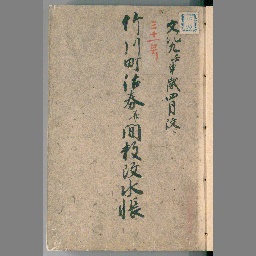 文化九壬申歳四月改
三十一号
竹川町沽券并間数改水帳